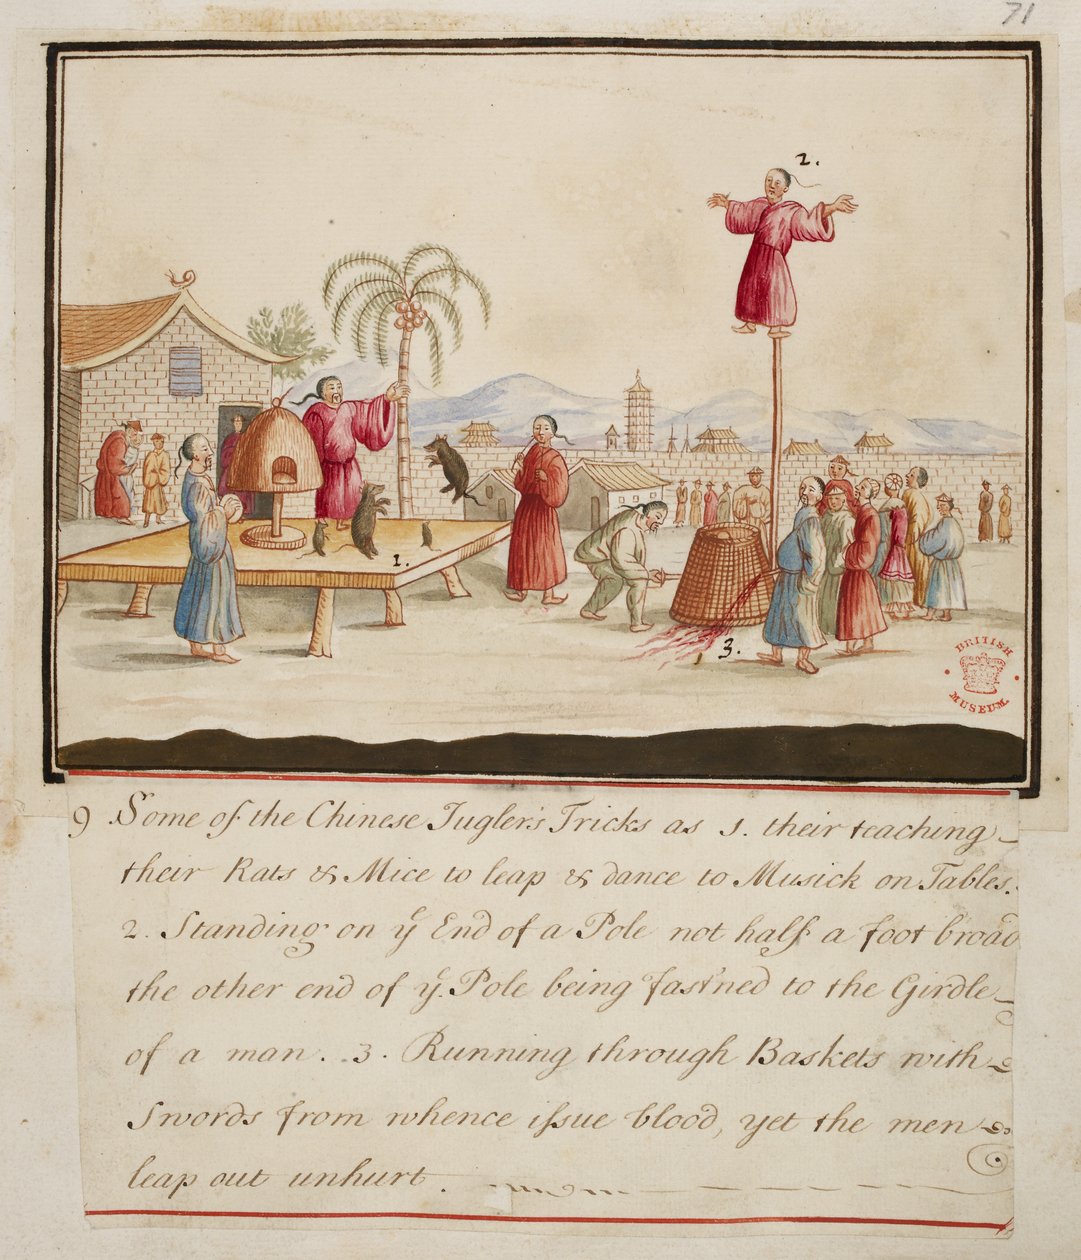 71
2.
1.
3.
BRITISH
MUSEUM
9 Some of the Chinese Jugler's Tricks as 1. their teaching
their Rats & Mice to leap & dance to Musick on Tables.
2. Standing on yᵉ End of a Pole not half a foot broad
the other end of yᵉ Pole being fast'ned to the Girdle
of a man. 3. Running through Baskets with
Swords from whence issue blood, yet the men
leap out unhurt.